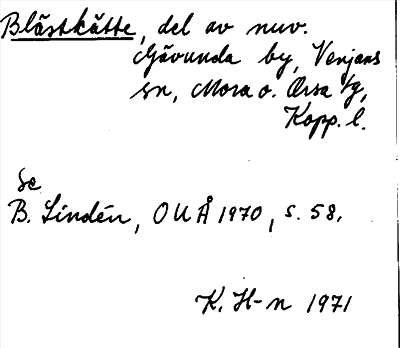 Blästkätte, del av nuv.
Gävunda by, Venjans
sn, Mora o. Orsa tg,
Kopp. l.
Se
B. Lindén, OUÅ 1970, s. 58.
K. H-n 1971